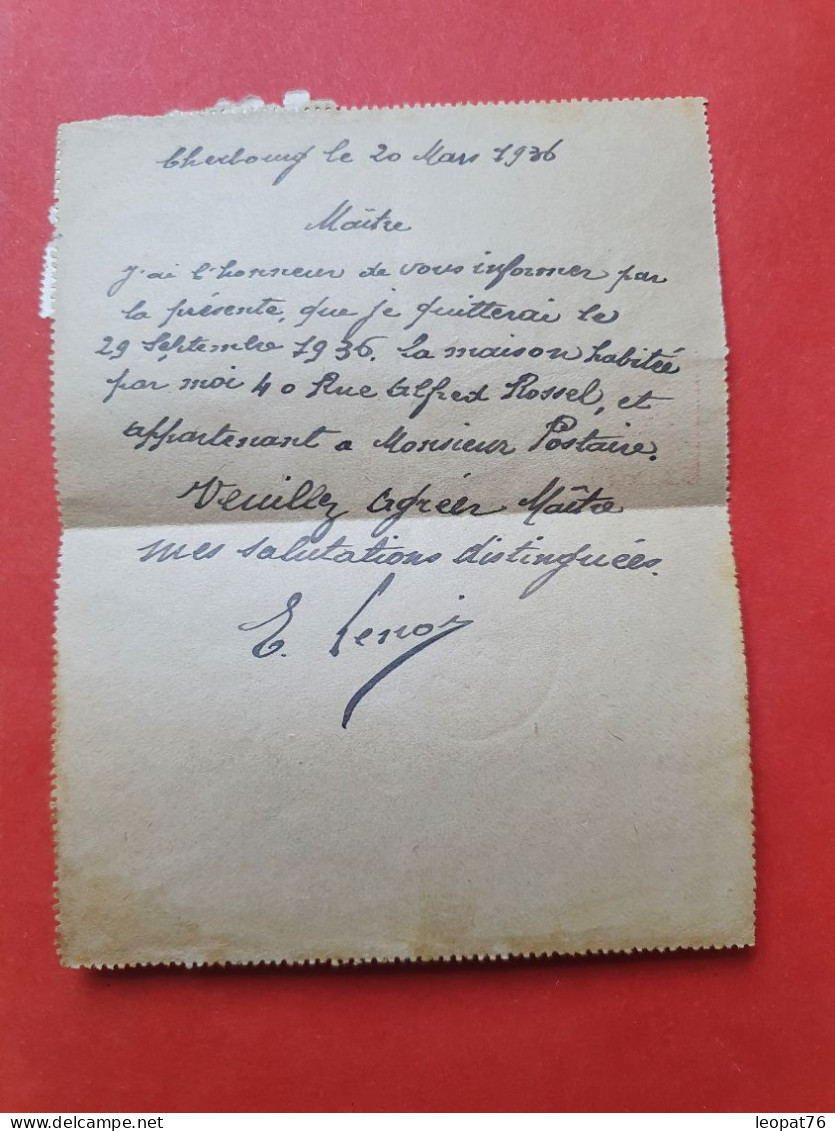 Cherbourg le 20 Mars 1936
Maître
J'ai l'honneur de vous informer par
la présente, que je quitterai le
29 Septembre 1936. la maison habitée
par moi 40 Rue Alfred Rossel, et
appartenant a Monsieur Postaire.
Veuillez agréer Maître
mes salutations distinguées.
E. Lenoir
leopat76